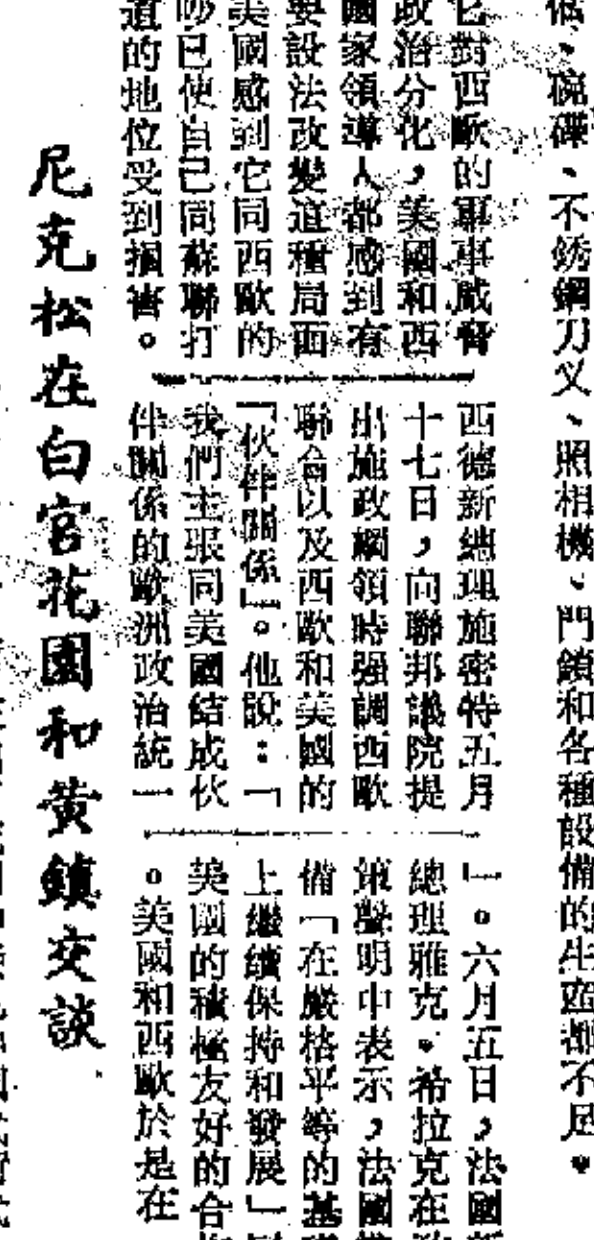 低、碗碟、不銹鋼刀叉、照相機、門鎖和各種設備的生產都不足。
它對西歐的軍事威脅
政治分化，美國和西
國家領導人都感到有
要設法改變這種局面
美國感到它同西歐的
吵已使自己同蘇聯打
道的地位受到損害。
西德新總理施密特五月
十七日，向聯邦議院提
出施政綱領時强調西歐
聯合以及西歐和美國的
「伙伴關係」。他說：「
我們主張同美國結成伙
伴關係的歐洲政治統一
」。六月五日，法國新
總理雅克·希拉克在政
策聲明中表示，法國準
備「在嚴格平等的基礎
上繼續保持和發展」
美國的積極友好的合
。美國和西歐於是在
尼克松在白宮花園和黄鎮交談